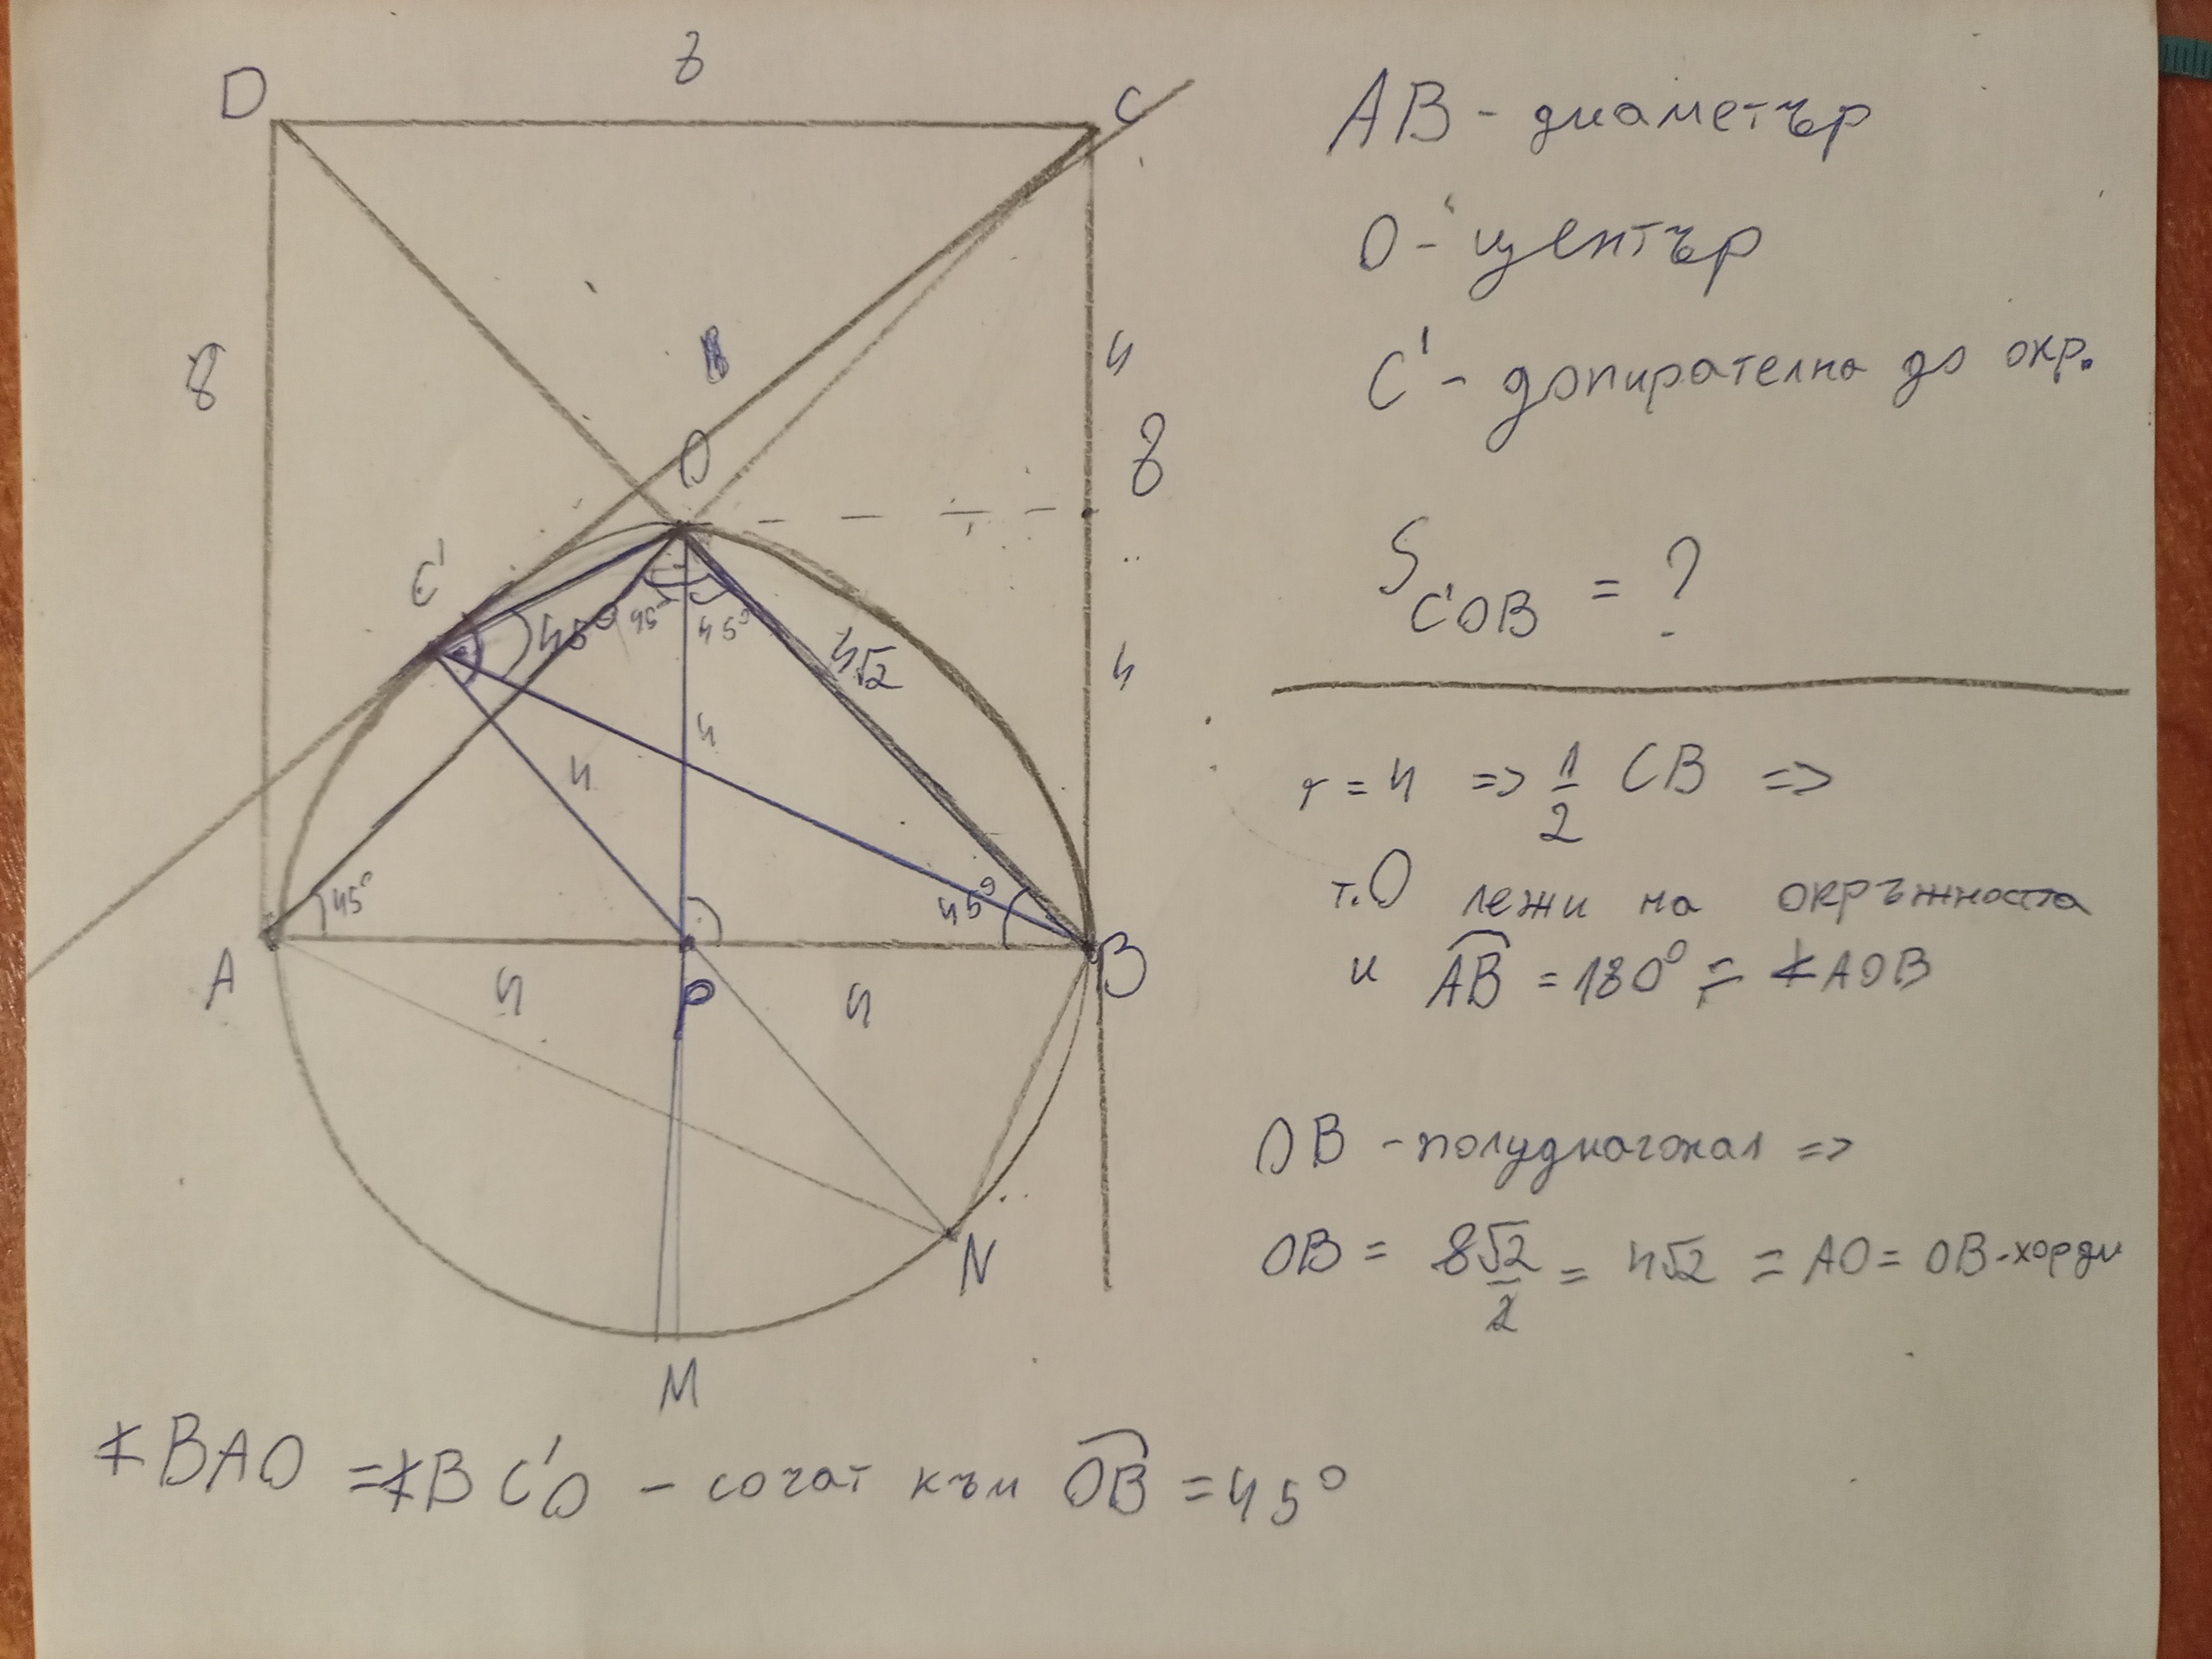 D
8
C
8
O
4
8
4
C'
45°
45°
45°
4√2
4
4
45°
45°
A
4
P
4
B
N
M
AB - диаметър
O - център
C' - допирателна до окр.
S C'OB = ?
r = 4 => 1/2 CB =>
т.O лежи на окръжността
и AB = 180° = ∢AOB
OB - полудиагонал =>
OB = 8√2/2 = 4√2 = AO = OB - хорди
∢BAO = ∢BC'O - сочат към OB = 45°